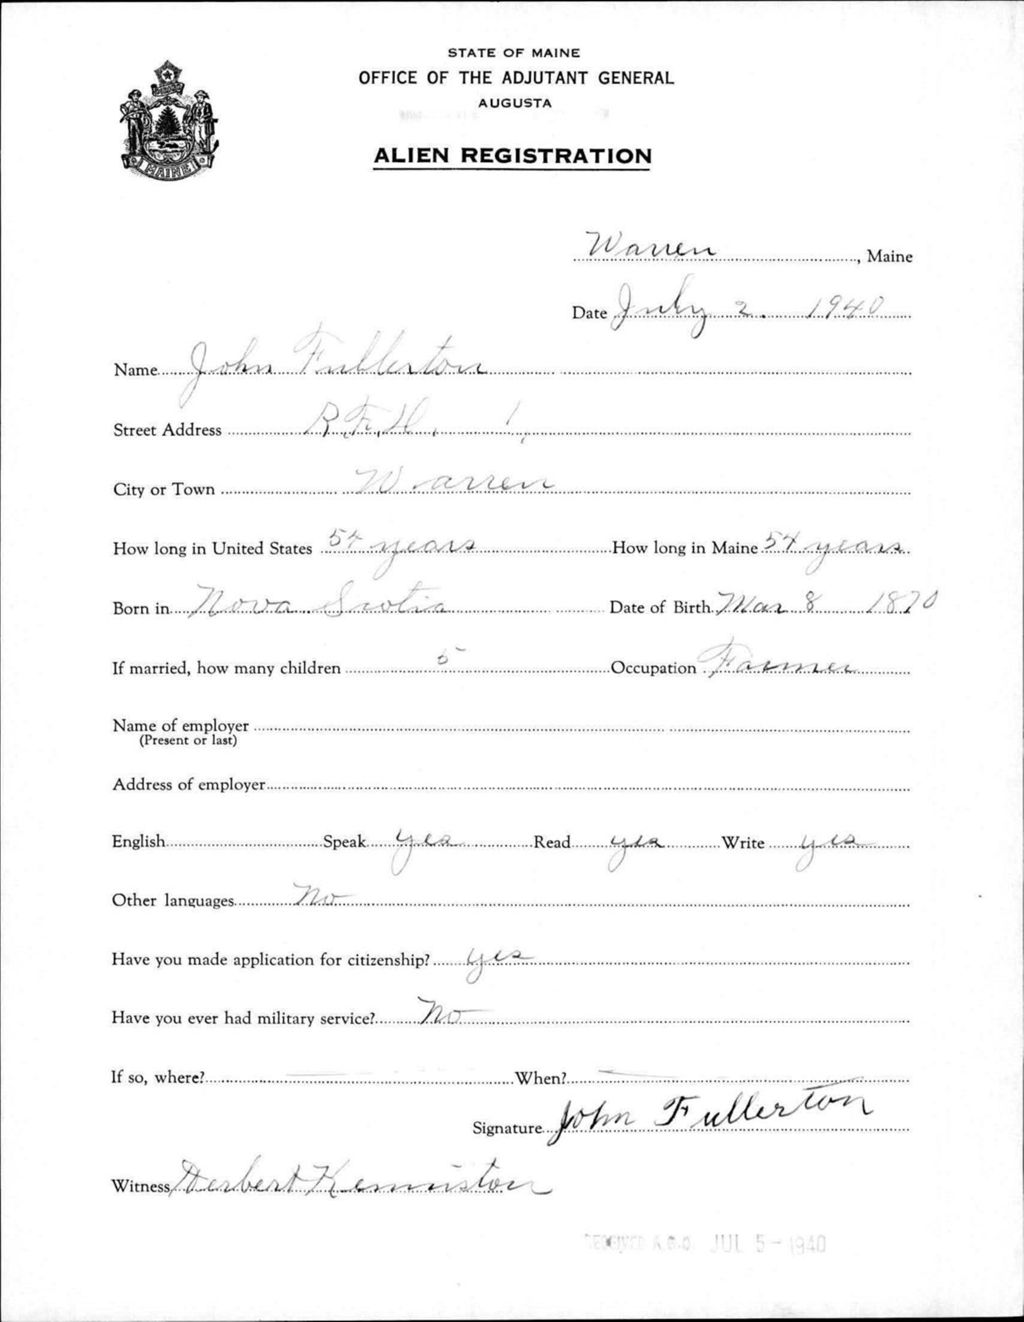 STATE OF MAINE
OFFICE OF THE ADJUTANT GENERAL
AUGUSTA
ALIEN REGISTRATION
MAINE
Warren, Maine
Date July 2. 1940
Name John Fullerton
Street Address R.F.D. 1,
City or Town Warren
How long in United States 54 years How long in Maine 54 years
Born in Nova Scotia Date of Birth Mar 8 1870
If married, how many children 5 Occupation Farmer
Name of employer
(Present or last)
Address of employer
English Speak yes Read yes Write yes
Other languages No
Have you made application for citizenship? yes
Have you ever had military service? No
If so, where? When?
Signature John Fullerton
Witness Herbert Kenniston
RECEIVED A.G.O. JUL 5 - 1940